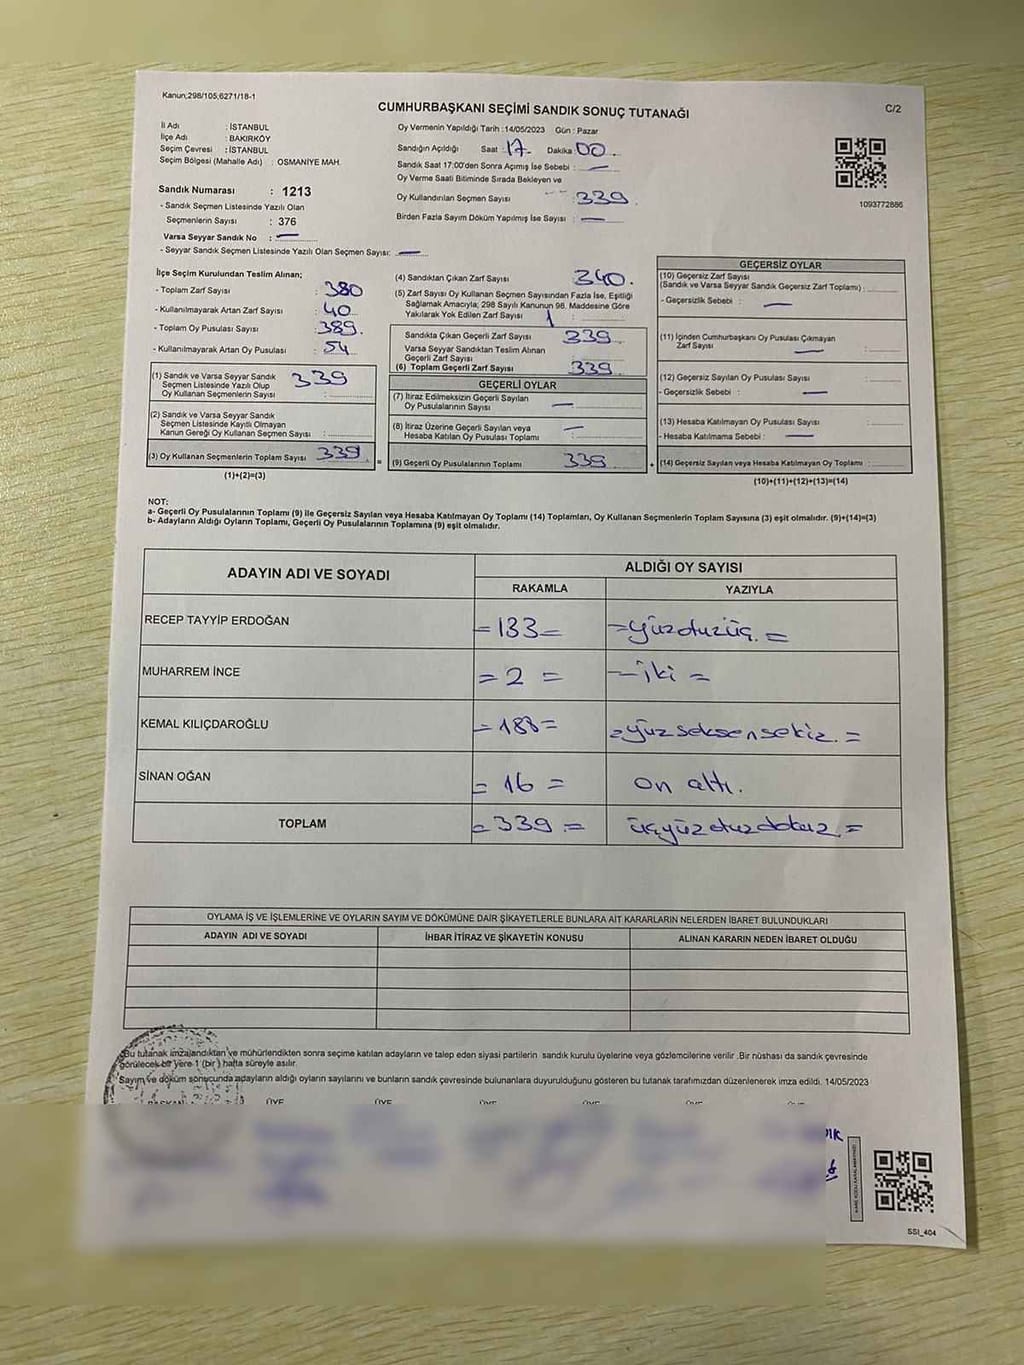 Kanun;298/105,6271/18-1
CUMHURBAŞKANI SEÇİMİ SANDIK SONUÇ TUTANAĞI
C/2
İl Adı : İSTANBUL
İlçe Adı : BAKIRKÖY
Seçim Çevresi : İSTANBUL
Seçim Bölgesi (Mahalle Adı) : OSMANİYE MAH.
Sandık Numarası : 1213
- Sandık Seçmen Listesinde Yazılı Olan
Seçmenlerin Sayısı : 376
Varsa Seyyar Sandık No : —
- Seyyar Sandık Seçmen Listesinde Yazılı Olan Seçmen Sayısı: —
Oy Vermenin Yapıldığı Tarih : 14/05/2023 Gün : Pazar
Sandığın Açıldığı Saat : 17 Dakika 00
Sandık Saat 17:00'den Sonra Açılmış İse Sebebi : —
Oy Verme Saati Bitiminde Sırada Bekleyen ve
Oy Kullandırılan Seçmen Sayısı : 339
Birden Fazla Sayım Döküm Yapılmış İse Sayısı : —
1093772886
İlçe Seçim Kurulundan Teslim Alınan;
- Toplam Zarf Sayısı : 380
- Kullanılmayarak Artan Zarf Sayısı : 40
- Toplam Oy Pusulası Sayısı : 389
- Kullanılmayarak Artan Oy Pusulası : 54
(1) Sandık ve Varsa Seyyar Sandık
Seçmen Listesinde Yazılı Olup
Oy Kullanan Seçmenlerin Sayısı : 339
(2) Sandık ve Varsa Seyyar Sandık
Seçmen Listesinde Kayıtlı Olmayan
Kanun Gereği Oy Kullanan Seçmen Sayısı :
(3) Oy Kullanan Seçmenlerin Toplam Sayısı : 339
(1)+(2)=(3)
(4) Sandıktan Çıkan Zarf Sayısı 340.
(5) Zarf Sayısı Oy Kullanan Seçmen Sayısından Fazla İse, Eşitliği
Sağlamak Amacıyla; 298 Sayılı Kanunun 98. Maddesine Göre
Yakılarak Yok Edilen Zarf Sayısı 1
Sandıkta Çıkan Geçerli Zarf Sayısı 339
Varsa Seyyar Sandıktan Teslim Alınan
Geçerli Zarf Sayısı
(6) Toplam Geçerli Zarf Sayısı 339
GEÇERLİ OYLAR
(7) İtiraz Edilmeksizin Geçerli Sayılan
Oy Pusulalarının Sayısı : —
(8) İtiraz Üzerine Geçerli Sayılan veya
Hesaba Katılan Oy Pusulası Toplamı : —
(9) Geçerli Oy Pusulalarının Toplamı 339
GEÇERSİZ OYLAR
(10) Geçersiz Zarf Sayısı
(Sandık ve Varsa Seyyar Sandık Geçersiz Zarf Toplamı) :
- Geçersizlik Sebebi : —
(11) İçinden Cumhurbaşkanı Oy Pusulası Çıkmayan
Zarf Sayısı —
(12) Geçersiz Sayılan Oy Pusulası Sayısı :
- Geçersizlik Sebebi : —
(13) Hesaba Katılmayan Oy Pusulası Sayısı :
- Hesaba Katılmama Sebebi : —
(14) Geçersiz Sayılan veya Hesaba Katılmayan Oy Toplamı :
(10)+(11)+(12)+(13)=(14)
NOT:
a- Geçerli Oy Pusulalarının Toplamı (9) ile Geçersiz Sayılan veya Hesaba Katılmayan Oy Toplamı (14) Toplamları, Oy Kullanan Seçmenlerin Toplam Sayısına (3) eşit olmalıdır. (9)+(14)=(3)
b- Adayların Aldığı Oyların Toplamı, Geçerli Oy Pusulalarının Toplamına (9) eşit olmalıdır.
ADAYIN ADI VE SOYADI ALDIĞI OY SAYISI
RAKAMLA YAZIYLA
RECEP TAYYİP ERDOĞAN =133= =yüzotuzüç.=
MUHARREM İNCE =2= =iki=
KEMAL KILIÇDAROĞLU =188= =yüzseksensekiz.=
SİNAN OĞAN =16= on altı.
TOPLAM =339= üçyüzotuzdokuz.=
OYLAMA İŞ VE İŞLEMLERİNE VE OYLARIN SAYIM VE DÖKÜMÜNE DAİR ŞİKAYETLERLE BUNLARA AİT KARARLARIN NELERDEN İBARET BULUNDUKLARI
ADAYIN ADI VE SOYADI İHBAR İTİRAZ VE ŞİKAYETİN KONUSU ALINAN KARARIN NEDEN İBARET OLDUĞU
Bu tutanak imzalandıktan ve mühürlendikten sonra seçime katılan adayların ve talep eden siyasi partilerin sandık kurulu üyelerine veya gözlemcilerine verilir .Bir nüshası da sandık çevresinde
görülecek bir yere 1 (bir) hafta süreyle asılır.
Sayım ve döküm sonucunda adayların aldığı oyların sayılarını ve bunların sandık çevresinde bulunanlara duyurulduğunu gösteren bu tutanak tarafımızdan düzenlenerek imza edildi. 14/05/2023
BAŞKAN ÜYE ÜYE ÜYE ÜYE ÜYE ÜYE
SSI_404